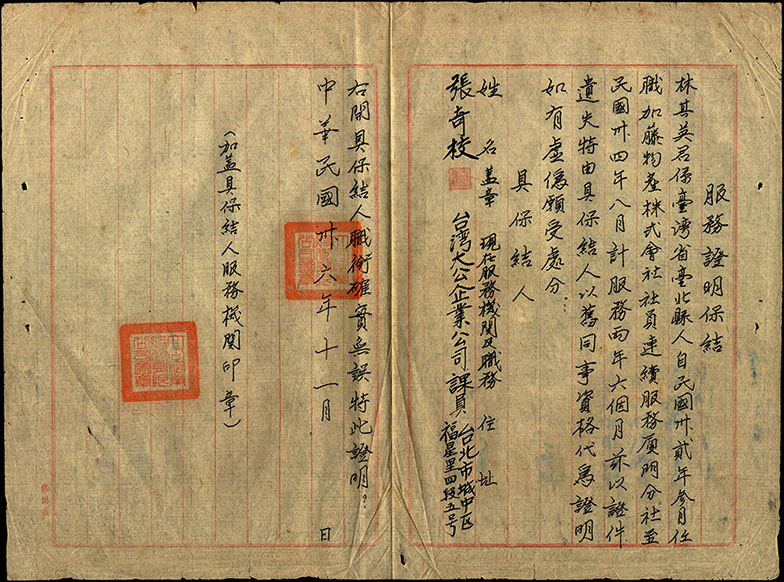 服務證明保結
林其英君係臺灣省臺北縣人自民國卅貳年參月任
職加藤物產株式會社社員連續服務厦門分社至
民國卅四年八月計服務兩年六個月茲以證件
遺失特由具保結人以舊同事資格代為證明
如有虛偽願受處分：
具保結人
姓名盖章 現在服務機關及職務 住址
張奇校 台湾大公企業公司課員 台北市城中区
福星里四段五号
右開具保結人職銜確實無誤特此證明：
中華民國卅六年十一月 日
（加盖具保結人服務機関印章）